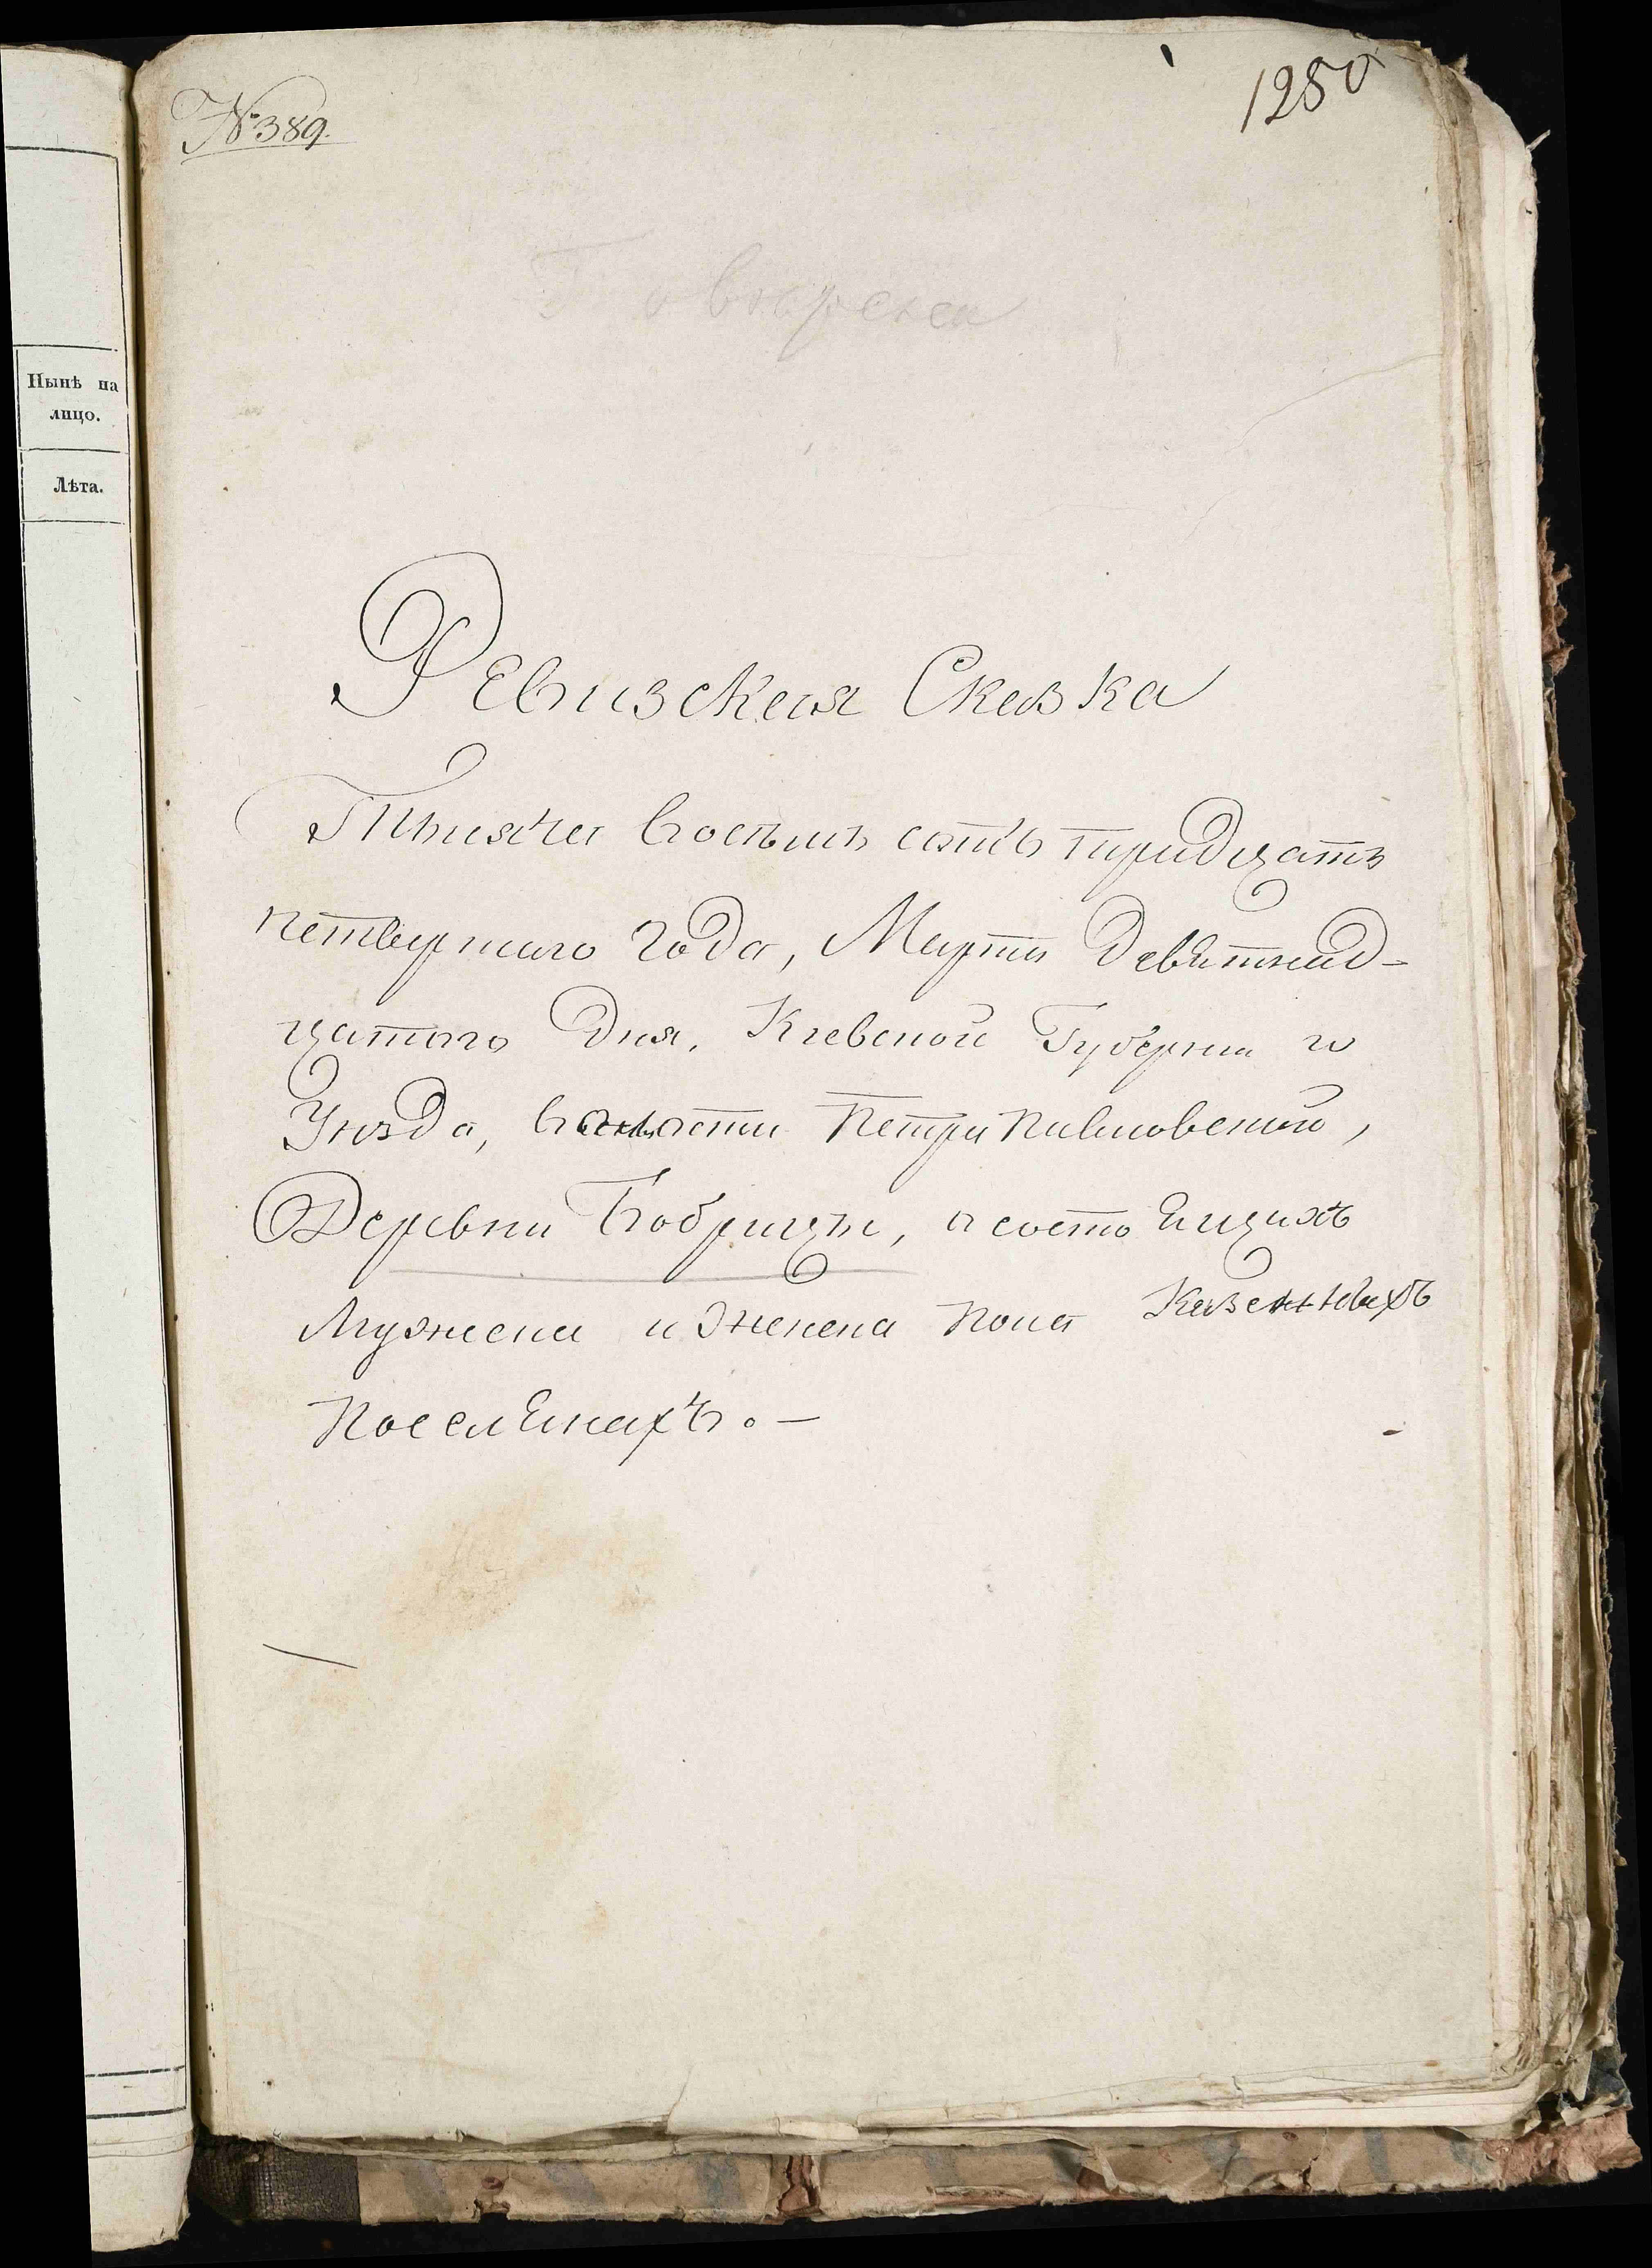 Нынѣ на
лицо.
Лѣта.
№ 389.
1280
Ревизская Сказка
Тысяча восемь сотъ тридцать
четвертаго года, Марта девятнад-
цатаго дня, Кіевской Губерніи и
Уѣзда, волости Петропавловской,
Деревни Бобрицы, о состоящихъ
мужеска и женска пола Казенныхъ
поселянахъ. —